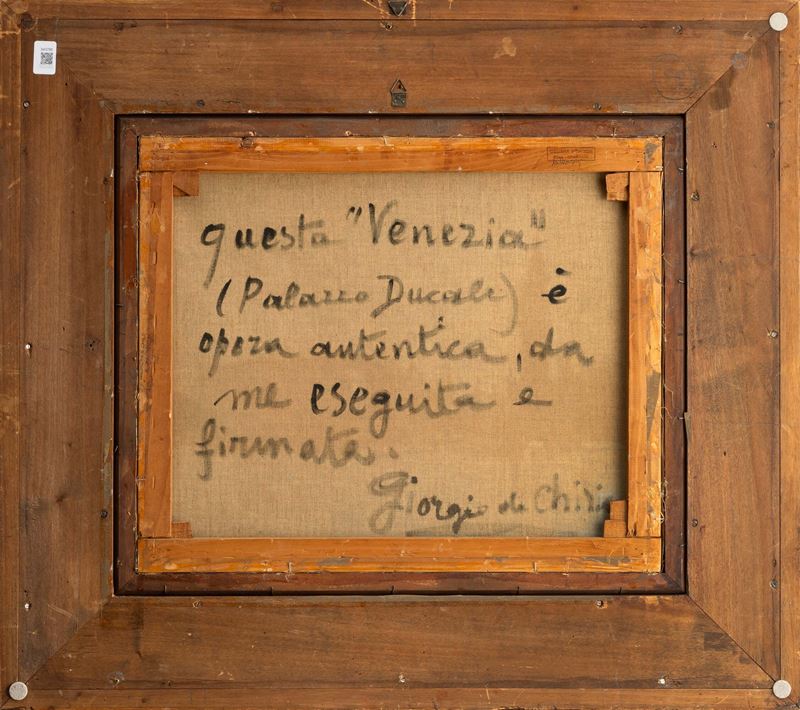 questa "Venezia"
(Palazzo Ducale) è
opera autentica, da
me eseguita e
firmata.
Giorgio de Chirico